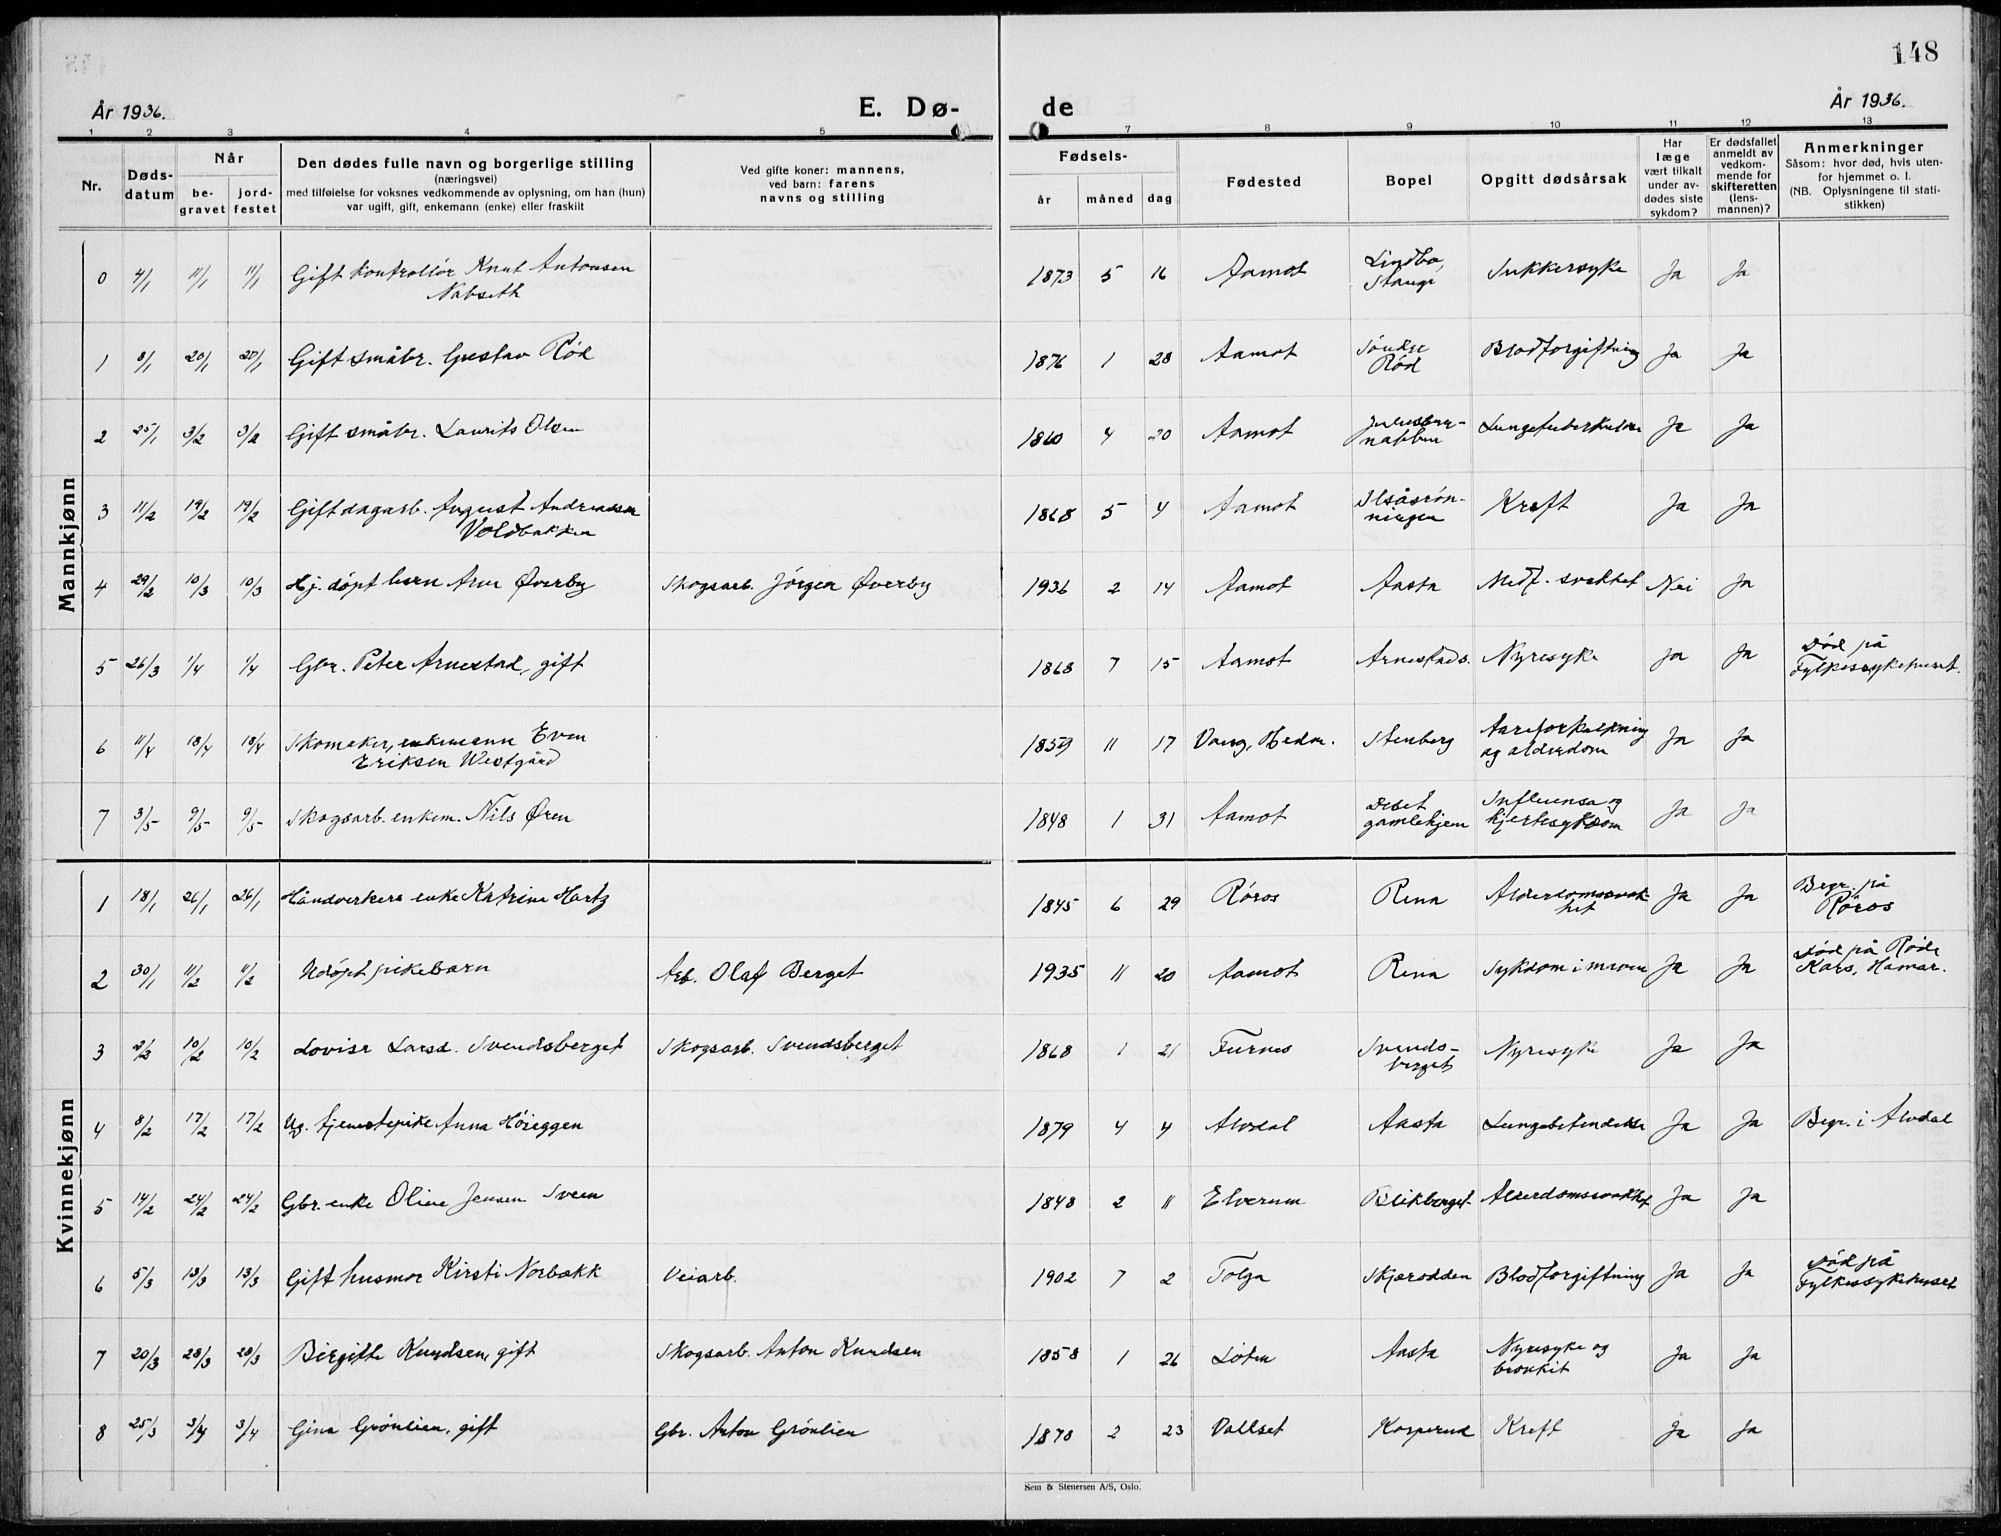 148
År 1936.
E. Dø-
de
År 1936.
1 2 3 4 5 7 8 9 10 11 12 13
Nr.
Døds-
datum
Når
be-
gravet
jord-
festet
Den dødes fulle navn og borgerlige stilling
(næringsvei)
med tilføielse for voksnes vedkommende av oplysning, om han (hun)
var ugift, gift, enkemann (enke) eller fraskilt
Ved gifte koner: mannens,
ved barn: farens
navns og stilling
Fødsels-
år
måned
dag
Fødested
Bopel
Opgitt dødsårsak
Har
læge
vært tilkalt
under av-
dødes siste
sykdom?
Er dødsfallet
anmeldt av
vedkom-
mende for
skifteretten
(lens-
mannen)?
Anmerkninger
Såsom: hvor død, hvis uten-
for hjemmet o. l.
(NB. Oplysningene til stati-
stikken)
Mannkjønn
0 4/1 11/1 11/1 Gift kontrollör Knut Antonsen
Nabseth
1873 5 16 Aamot Lindbo,
Stange
Sukkersyke Ja Ja
1 8/1 20/1 20/1 Gift småbr. Gustav Röd 1876 1 28 Aamot Söndre
Röd
Blodforgiftning Ja Ja
2 25/1 3/2 3/2 Gift småbr. Laurits Olsen 1860 4 20 Aamot
nabben
Lungetuberkulose Ja Ja
3 11/2 19/2 19/2 Gift dagarb. August Andreassen
Voldbakken
1868 5 4 Aamot Ilsåsrøn-
ningen
Kreft Ja Ja
4 29/2 10/3 10/3 Hj. döpt barn Arne Øverby Skogsarb. Jörgen Øverby 1936 2 14 Aamot Aasta Medf. svakhet Nei Ja
5 26/3 1/4 1/4 Gbr. Peter Arnestad, gift 1868 7 15 Aamot Arnestads. Nyresyke Ja Ja Död på
Fylkessykehuset.
6 11/4 18/4 18/4 Skomaker, enkemann Even
Eriksen Westgård
11 17 Vang, Hedm. Stenberg Aareforkalkning
og alderdom
Ja Ja
7 3/5 9/5 9/5 Skogsarb. enkem. Nils Ören 1848 1 31 Aamot Deset
gamlehjem
Influensa og
hjertesykdom
Ja Ja
Kvinnekjønn
1 18/1 26/1 26/1 Håndverkers enke Katrine Hartz 1845 6 29 Röros Rena Alderdomssvak-
het
Ja Ja Begr. på
Röros
2 30/1 11/2 11/2 Udöpt pikebarn Arb. Olaf Berget 1935 11 20 Aamot Rena Sykdom i maven Ja Ja Död på Röde
Kors, Hamar.
3 2/2 10/2 10/2 Lovise Larsd. Svendsberget Skogsarb. Svendsberget 1868 1 21 Furnes Svends-
berget
Nyresyke Ja Ja
4 8/2 17/2 17/2 Ug. tjenestepike Anna Höieggen 1879 4 4 Alvdal Aasta Lungebetendelse Ja Ja Begr. i Alvdal
5 14/2 24/2 24/2 Gbr. enke Oline Jensen Sveen 1848 2 11 Elverum Blikberget Alderdomssvakhet Ja Ja
6 5/3 13/3 13/3 Gift husmor Kirsti Norbækk Veiarb. 1902 7 2 Tolga Skjærodden Blodforgiftning Ja Ja Död på
Fylkessykehuset
7 20/3 28/3 28/3 Birgitte Knudsen, gift Skogsarb. Anton Knudsen 1858 1 26 Löten Aasta Nyresyke og
bronkit
Ja Ja
8 25/3 3/4 3/4 Gina Grönlien, gift Gbr. Anton Grönlien 1878 2 23 Vallset Kasperud Kreft Ja Ja
Sem & Stenersen A/S, Oslo.